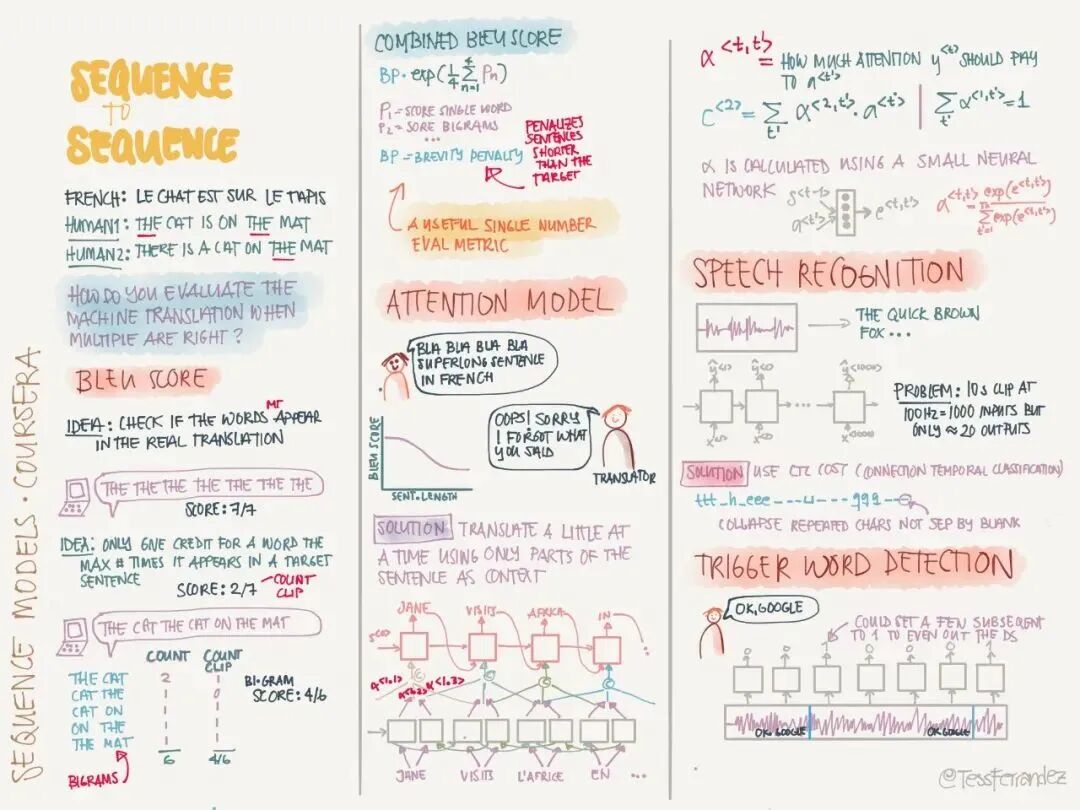 SEQUENCE MODELS · COURSERA
SEQUENCE
TO
SEQUENCE
FRENCH: LE CHAT EST SUR LE TAPIS
HUMAN1: THE CAT IS ON THE MAT
HUMAN2: THERE IS A CAT ON THE MAT
HOW DO YOU EVALUATE THE
MACHINE TRANSLATION WHEN
MULTIPLE ARE RIGHT?
BLEU SCORE
IDEA: CHECK IF THE WORDS MT APPEAR
IN THE REAL TRANSLATION
THE THE THE THE THE THE THE
SCORE: 7/7
IDEA: ONLY GIVE CREDIT FOR A WORD THE
MAX # TIMES IT APPEARS IN A TARGET
SENTENCE
SCORE: 2/7
COUNT
CLIP
THE CAT THE CAT ON THE MAT
COUNT COUNT CLIP
THE CAT 2 1
CAT THE 1 0
CAT ON 1 1
ON THE 1 1
THE MAT 1 1
6 4/6
BIGRAM
SCORE: 4/6
BIGRAMS
COMBINED BLEU SCORE
BP · exp(1/4 4∑n=1 Pn)
P1 = SCORE SINGLE WORD
P2 = SORE BIGRAMS
...
BP = BREVITY PENALTY
PENALIZES
SENTENCES
SHORTER
THAN THE
TARGET
A USEFUL SINGLE NUMBER
EVAL METRIC
ATTENTION MODEL
BLA BLA BLA BLA
SUPERLONG SENTENCE
IN FRENCH
OOPS! SORRY
I FORGOT WHAT
YOU SAID
TRANSLATOR
BLEU SCORE
SENT. LENGTH
SOLUTION TRANSLATE A LITTLE AT
A TIME USING ONLY PARTS OF THE
SENTENCE AS CONTEXT
JANE VISITS AFRICA IN
S<0> ...
α<1,1> α<1,2> α<1,3> C C C C
JANE VISITS L'AFRICE EN ...
α<t,t'> = HOW MUCH ATTENTION y<t> SHOULD PAY
TO a<t'>
C<2> = ∑t' α<2,t'> · a<t'> | ∑t' α<1,t'> = 1
α IS CALCULATED USING A SMALL NEURAL
NETWORK
S<t-1>
a<t'> → e<t,t'>
α<t,t'> = exp(e<t,t'>) / ∑t'=1 exp(e<t,t'>)
SPEECH RECOGNITION
THE QUICK BROWN
FOX ...
ŷ<1> ŷ<2> ŷ<1000>
...
x<1> x<2> x<1000>
PROBLEM: 10s CLIP AT
100Hz = 1000 INPUTS BUT
ONLY ≈ 20 OUTPUTS
SOLUTION USE CTC COST (CONNECTION TEMPORAL CLASSIFICATION)
ttt_h_eee---⊔---qqq--
COLLAPSE REPEATED CHARS NOT SEP BY BLANK
TRIGGER WORD DETECTION
OK, GOOGLE
COULD SET A FEW SUBSEQUENT
TO 1 TO EVEN OUT THE DS
0 0 1 0 0 0 1
OK, GOOGLE OK GOOGLE
@TessFerrandez